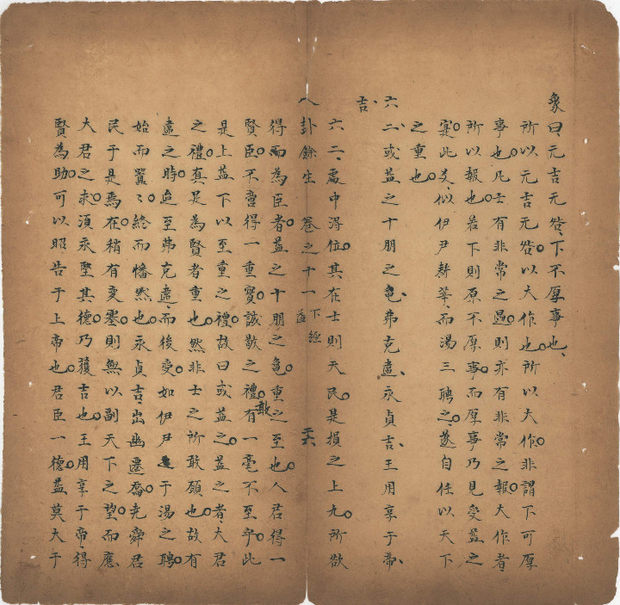 象曰元吉元咎下不厚事也
所以元吉元咎以大作也所以大作非謂下可厚
事也凡士有非常之遇則亦有非常之報大作者
所以報也若下則原不厚事而厚事乃見受益之
寔此爻似伊尹耕莘而湯三聘之遂自任以天下
之重也
六二或益之十朋之龜弗克違永貞吉王用享于帝
吉
六二處中得位其在士則天民是損之上九所欲
八卦餘生 卷之十一 下經 益 六
得而為臣者益之十朋之龜重之至也人君得一
賢臣不啻得一重寶誠敬之禮有一毫不至乎此
敢
是上益下以至重之禮故曰或益之益之者大君
之禮真是為賢者重也然非士之所敢願也故有
違之時迨至弗克違而後受如伊尹于湯之聘
始而囂〻終而幡然也永貞吉出幽遷喬堯舜君
民于是焉在稍有變塞則無以副天下之望而應
大君之求須永堅其德乃獲吉也王用享于帝得
賢為助可以昭告于上帝也君臣一德益莫大于